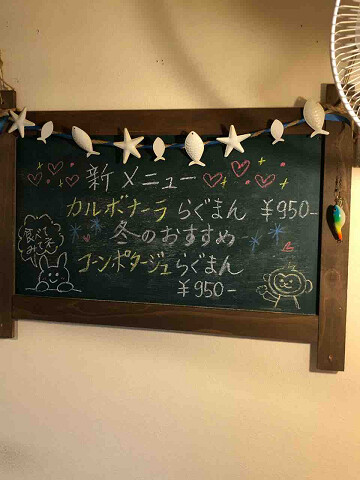 新メニュー
カルボナーラらぐまん ¥950-
冬のおすすめ
コーンポタージュらぐまん
¥950-
食べて
みてネ